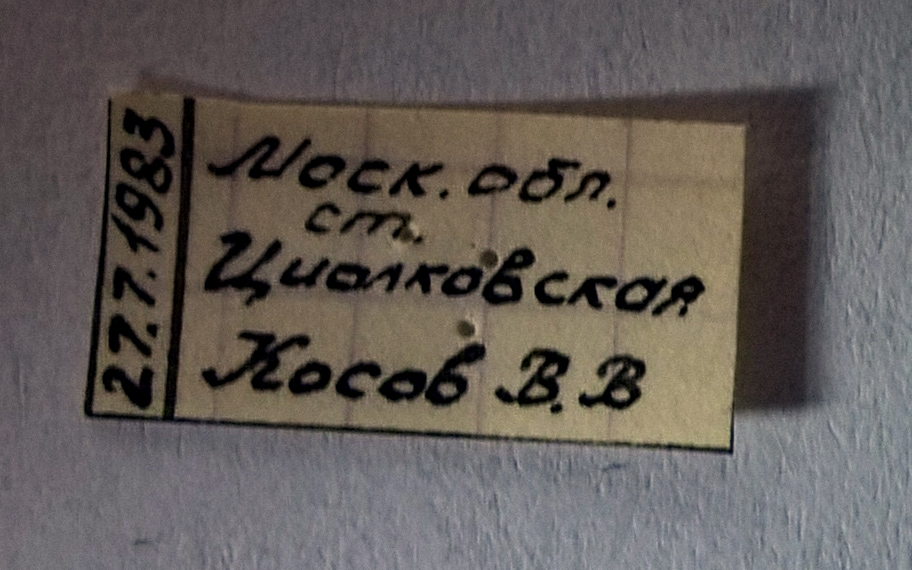 27.7.1983
Моск. обл.
ст.
Циолковская
Косов В.В